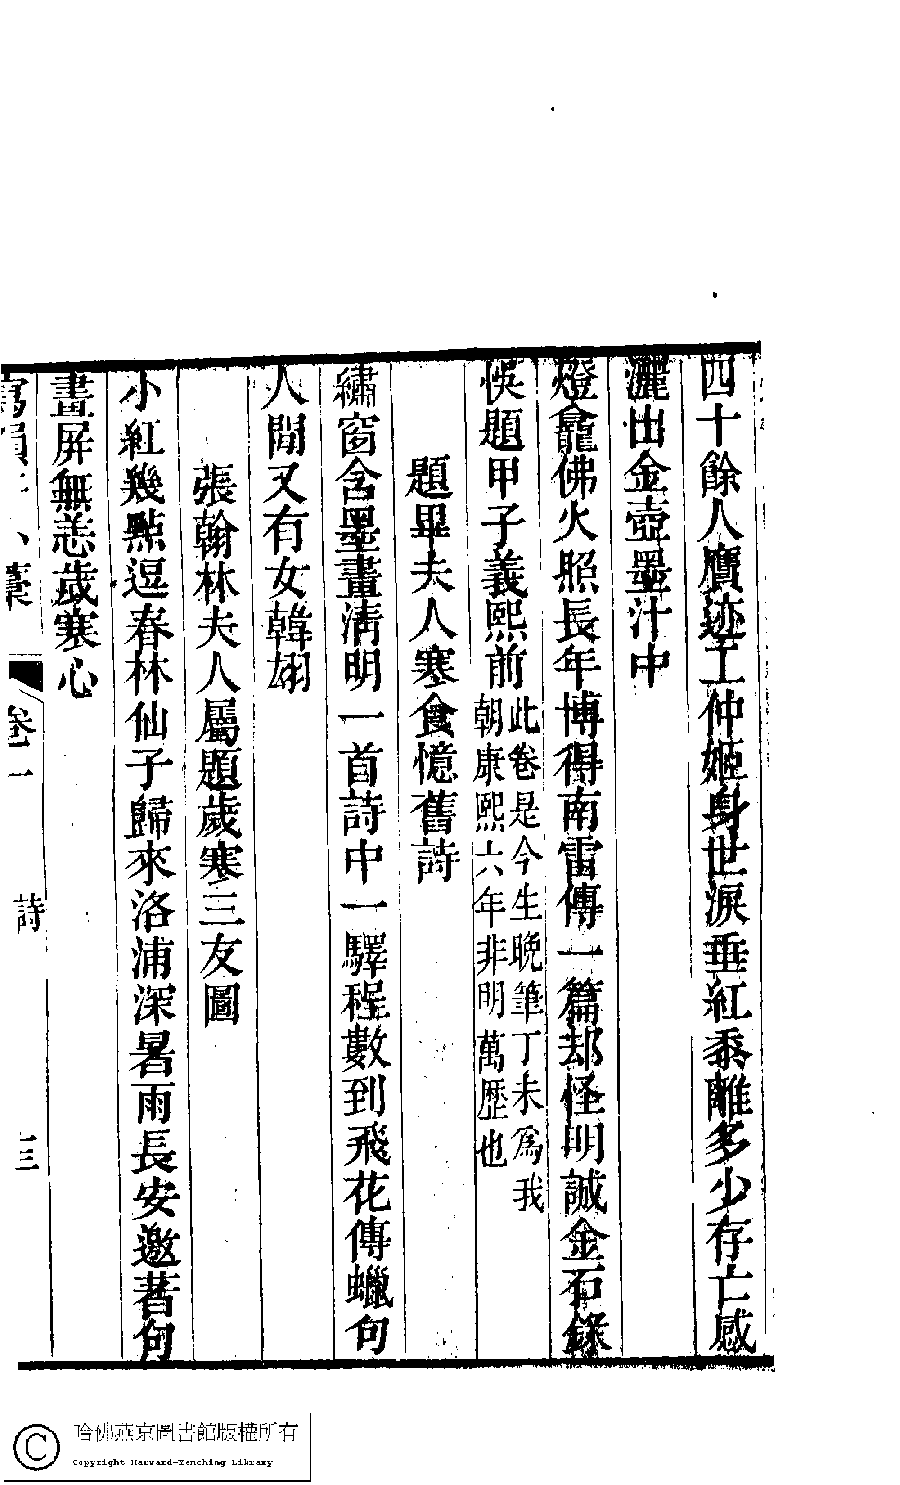 四十餘人贋迹工仲姬身世淚垂紅黍離多少存亡感
灑出金壺墨汁中
燈龕佛火照長年博得南雷傳一篇却怪明誠金石錄
悞題甲子義熙前此卷是今生晚筆丁未爲我
朝康熙六年非明萬歷也
題畢夫人寒食憶舊詩
繡窗含墨畫淸明一首詩中一驛程數到飛花傳蠟句
人間又有女韓翃
張翰林夫人屬題歲寒三友圖
小紅幾點逗春林仙子歸來洛浦深暑雨長安邀著句
畫屏無恙歲寒心
寫韻軒小藁
卷一
詩
三
哈佛燕京圖書館版權所有
Copyright Harvard-Yenching Library